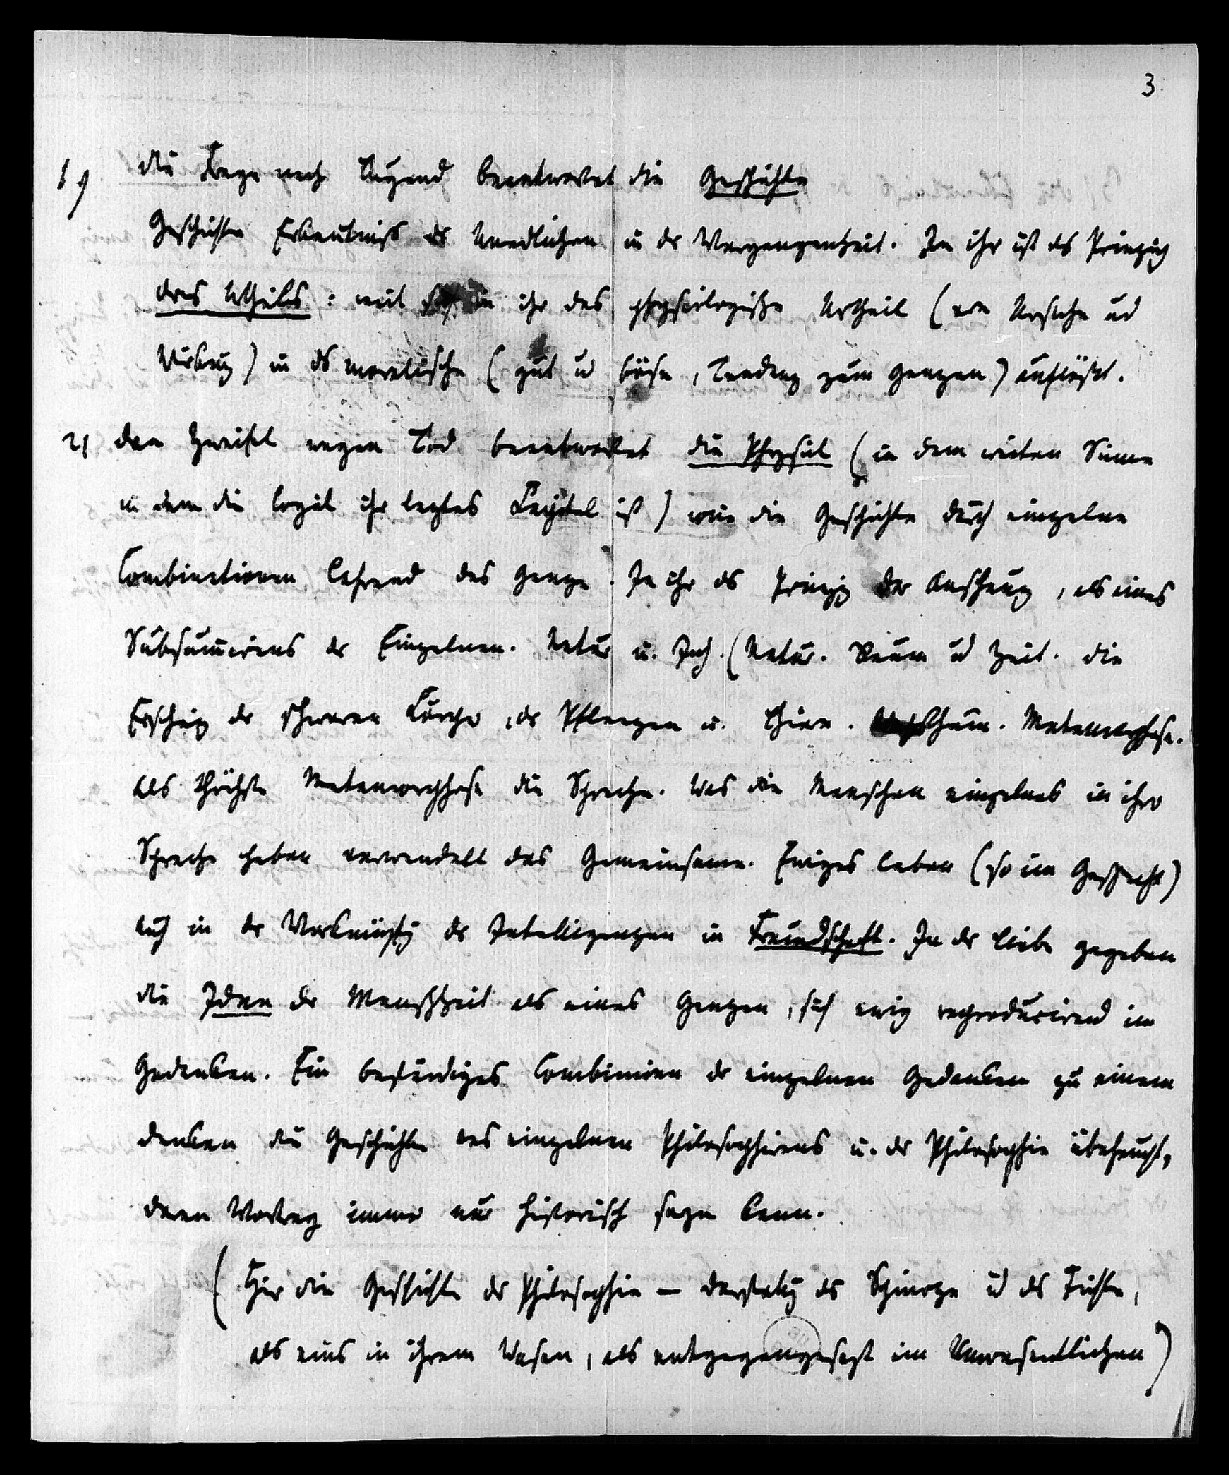 3
1) die Frage nach Tugend beantwortet die Geschichte
Geschichte Erkentniß des Unendlichen in der Vergangenheit. In ihr ist das Prinzip
des Urtheils: weil sich in ihr das physiologische Urtheil (von Ursache und
Wirkung) in das moralische (gut und böse, Tendenz zum Ganzen) auflöset.
2) den Zweifel wegen Tod beantwortet die Physik (in dem weiten Sinne
in dem die Logik ihr letztes Kapitel ist) wie die Geschichte durch einzelne
Combinationen lehrend das Ganze. In ihr das Prinzip der Anschauung, als eines
Subsumirens der Einzelnen. Natur u. Ich. (Natur. Raum und Zeit. die
Erscheinung der schweren Körper, der Pflanzen u. Thiere. Metamorphose.
Als höchste Metamorphose die Sprache. Was die Menschen einzelnes in ihrer
Sprache haben verwandelt das Gemeinsame. Ewiges Leben (so im Gespräch)
auch in der Verknüpfung der Intelligenzen in Freundschaft. In der Liebe gegeben
die Ideen der Menschheit als eines Ganzen, sich ewig reproducirend im
Gedanken. Ein beständiges Combiniren der einzelnen Gedanken zu einem
denken die Geschichte des einzelnen Philosophirens u. der Philosophie überhaupt,
deren Vortrag immer nur historisch seyn kann.
(Hier die Geschichte der Philosophie — Darstellung des Spinoza und des Fichte,
als eins in ihrem Wesen, als entgegengesezt im Unwesentlichen)